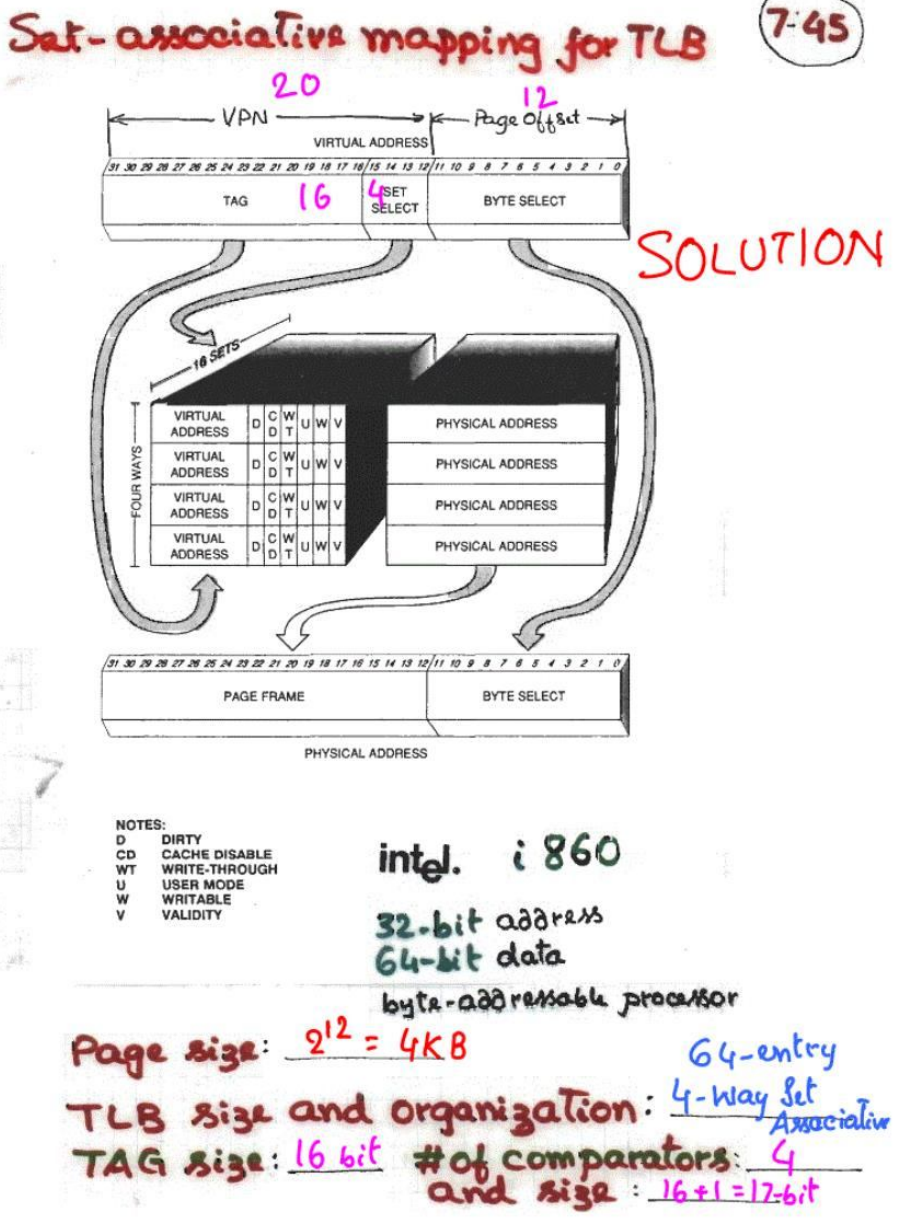 Set-associative mapping for TLB
7-45
20
12
VPN
Page Offset
VIRTUAL ADDRESS
31 30 29 28 27 26 25 24 23 22 21 20 19 18 17 16 15 14 13 12 11 10 9 8 7 6 5 4 3 2 1 0
TAG 16
4 SET SELECT
BYTE SELECT
SOLUTION
16 SETS
FOUR WAYS
VIRTUAL ADDRESS D CD WT U W V PHYSICAL ADDRESS
VIRTUAL ADDRESS D CD WT U W V PHYSICAL ADDRESS
VIRTUAL ADDRESS D CD WT U W V PHYSICAL ADDRESS
VIRTUAL ADDRESS D CD WT U W V PHYSICAL ADDRESS
31 30 29 28 27 26 25 24 23 22 21 20 19 18 17 16 15 14 13 12 11 10 9 8 7 6 5 4 3 2 1 0
PAGE FRAME
BYTE SELECT
PHYSICAL ADDRESS
NOTES:
D DIRTY
CD CACHE DISABLE
WT WRITE-THROUGH
U USER MODE
W WRITABLE
V VALIDITY
intel. i 860
32-bit address
64-bit data
byte-addressable processor
Page size: 2^12 = 4KB
64-entry
TLB size and organization: 4-Way Set
Associative
TAG size: 16 bit # of comparators: 4
and size : 16+1 = 17-bit